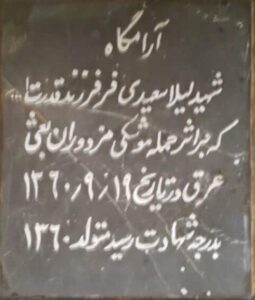 آرامگاه
شهید لیلا سعیدی فر فرزند قدرت
که براثر حمله موشکی مزدوران بعثی
عراقی در تاریخ ۱۳۶۰/۹/۱۹
بدرجه شهادت رسید متولد ۱۳۶۰